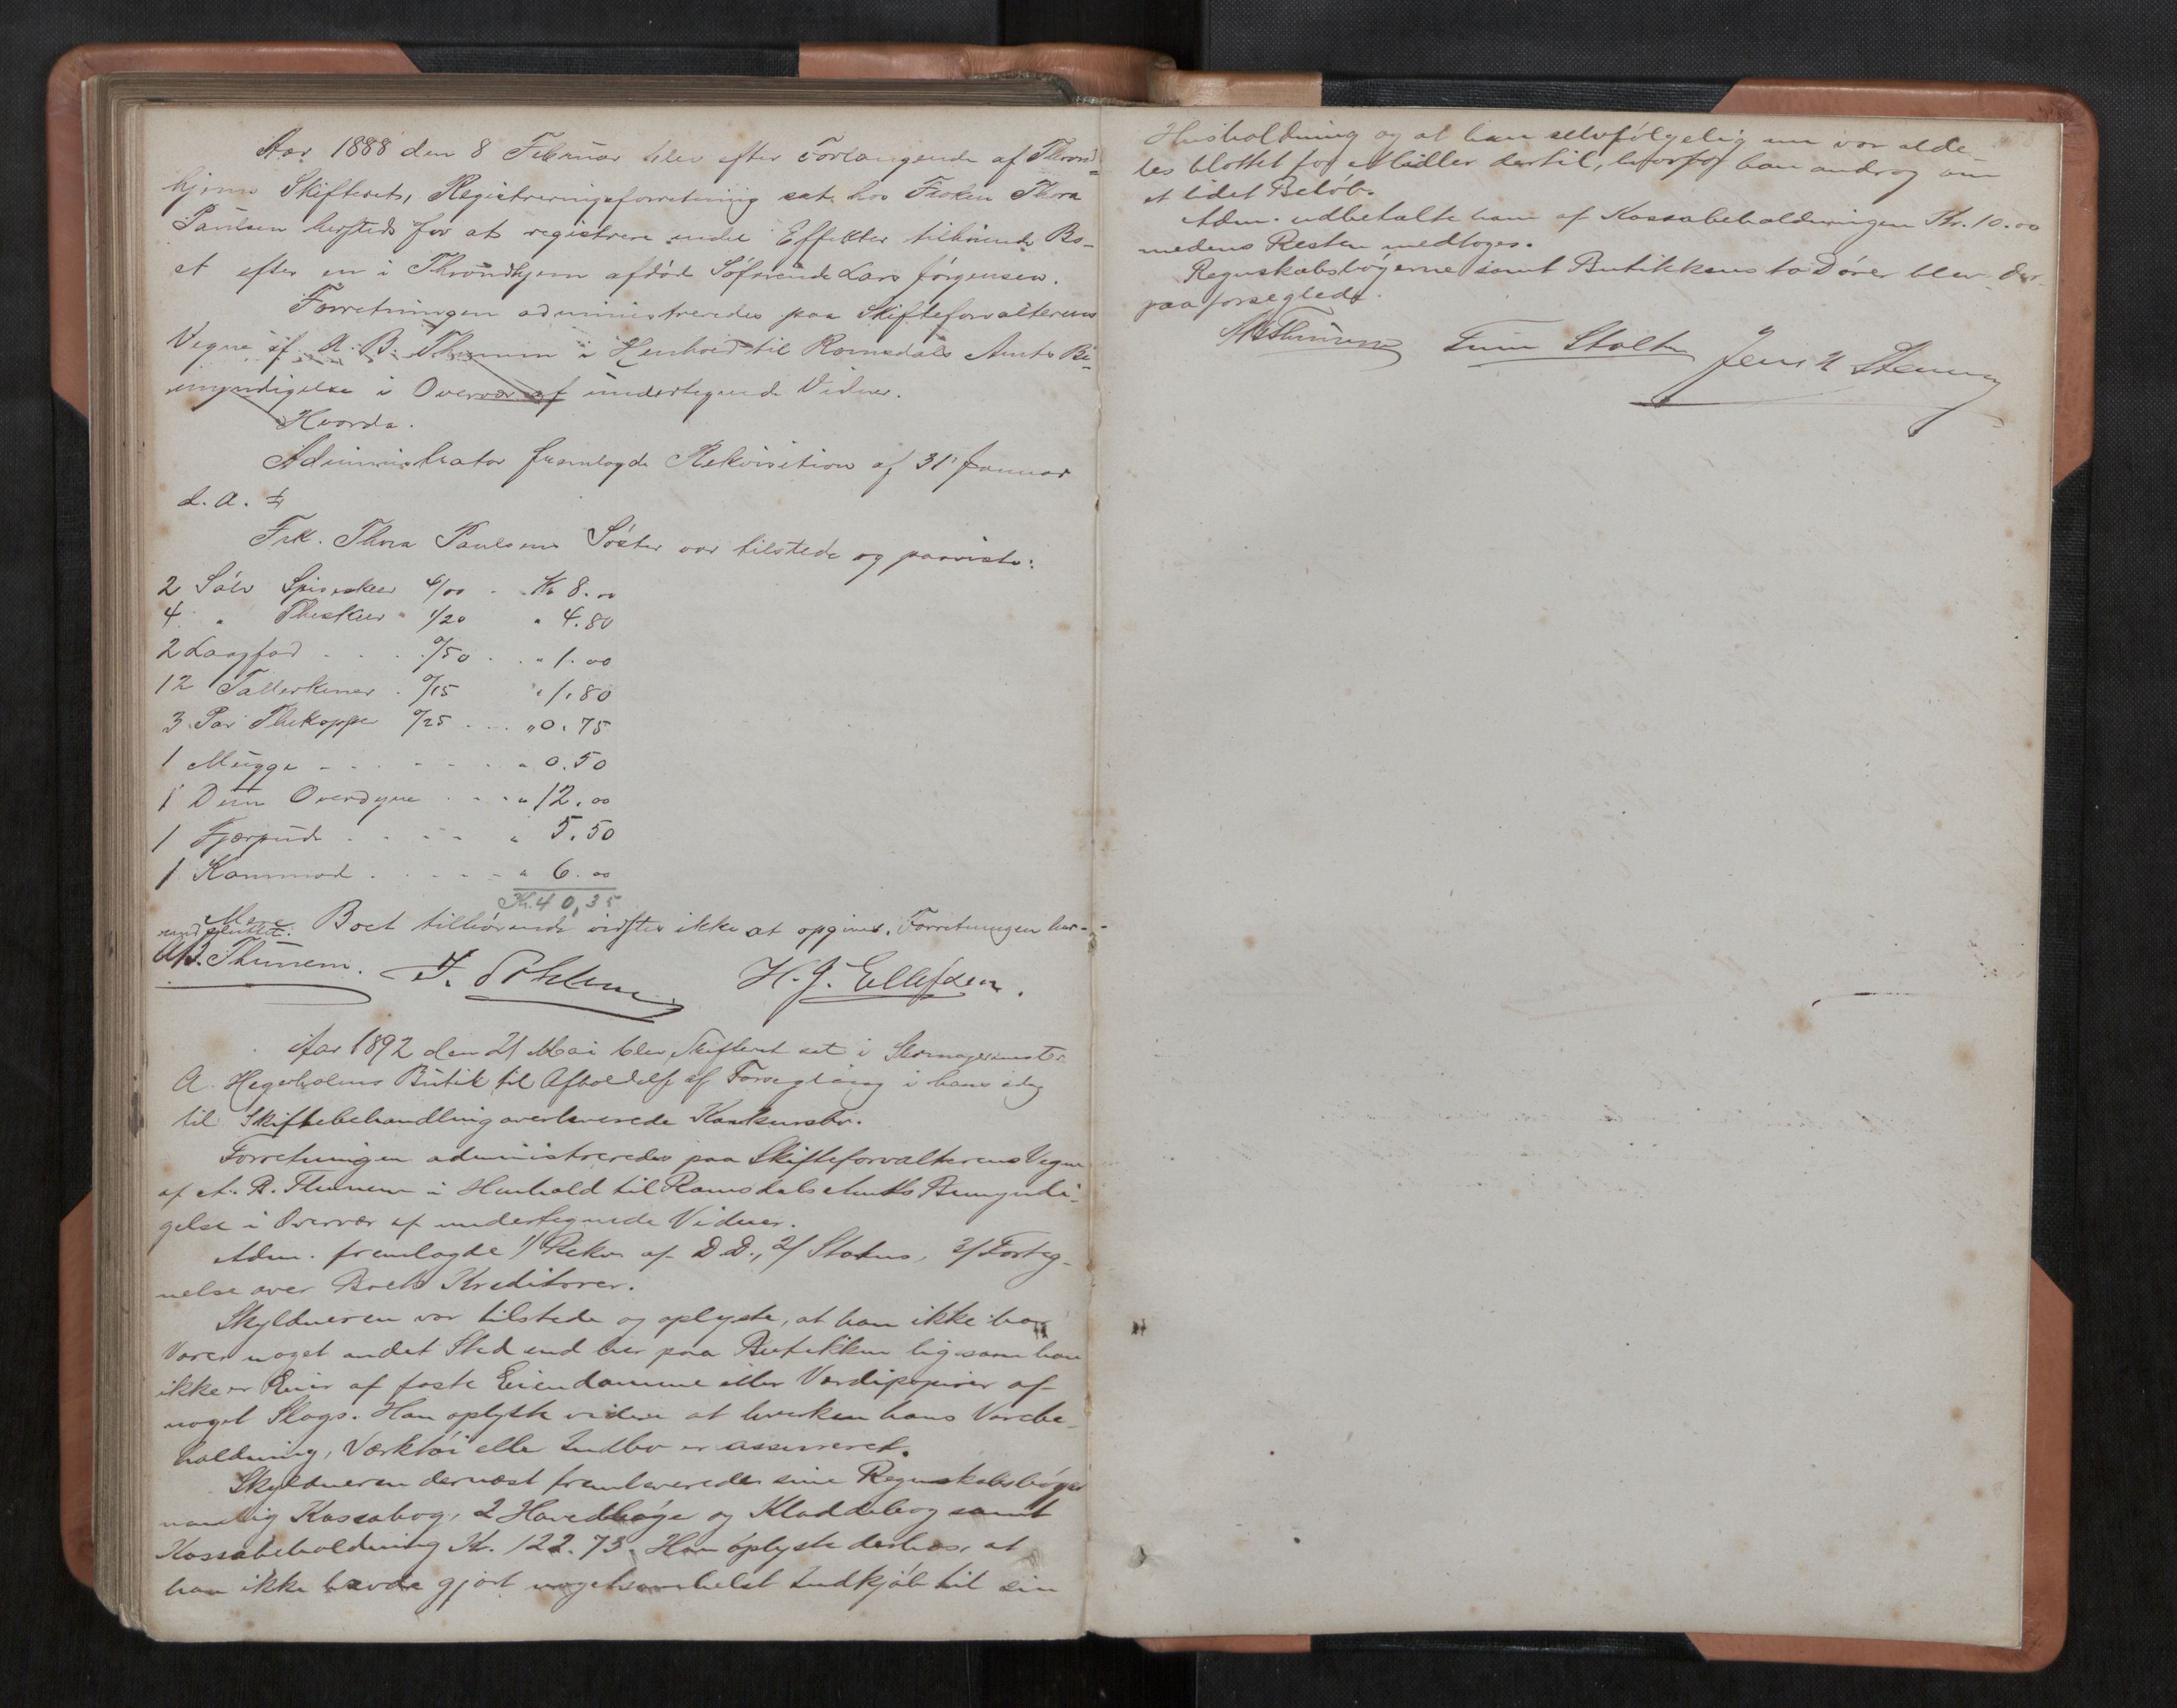 Aar 1888 den 8 Februar blev efter Forlangende af Thrond-
hjems Skifteret, Registreringsforretning sat hos Frøken Thora
Paulsen hersteds for at registrere endel Effekter tilhørende Bo-
et efter en i Throndhjem afdød Søfarende Lars Jørgensen.
Forretningen administreredes paa Skifteforvalterens
Vegne af A. B. Thunem i Henhold til Romsdals Amts Be-
myndigelse i Overvær af undertegnede Vidner.
Hvorda.
Administrator fremlagde Rekvisition af 31' Januar
d. A. 
Frk. Thora Paulsens Søster var tilstede og paaviste:
2 Sølv Spiseskeer 4/00 . . Kr 8.00
4 " Theskeer " 1/20 " 4.80
2 Langfad . . . 0/50 . . " 1.00
12 Tallerkener . 0/15 " 1.80
3 Par Thekopper 0/25 . . . " 0.75
1 Mugge . . . . . " 0.50
1 Dun Overdyne . . . " 12.00
1 Fjærpude . . . . " 5.50
1 Kommod . . . . . " 6.00
Kr. 40,35
Mere Boet tilhørende vidstes ikke at opgives. Forretningen her-
med sluttet.
AB. Thunem. H. J. Ellefsen.
Aar 1892 den 21 Mai blev Skifteret sat i Skomagermester
A. Hegerholms Butik til Afholdelse af Forsegling i hans idag
til Skiftebehandling overleverede Konkursbo.
Forretningen administreredes paa Skifteforvalterens Vegne
af A. B. Thunem i Henhold til Romsdals Amts Bemyndi-
gelse i Overvær af undertegnede Vidner.
Adm. fremlagde 1/ Rekv. af D. D., 2/ Status, 3/ Forteg-
nelse over Boets Kreditorer.
Skyldneren var tilstede og oplyste, at han ikke har
Varer noget andet Sted end her paa Butikken ligesom han
ikke er Eier af faste Eiendomme eller Værdipapirer af
noget Slags. Han oplyste videre at hverken hans Varebe-
holdning, Værktøi eller Indbo er assureret.
Skyldneren dernæst fremleverede sine Regnskabsbøger
nemlig Kassabog, 2 Hovedbøger og Kladdebog samt
Kassabeholdning Kr. 122.73. Han oplyste derhos, at
han ikke havde gjort nogetsomhelst Indkjøb til sin
Husholdning og at han selvfølgelig nu var alde-
les blottet for Midler dertil, hvorfor han androg om
et lidet Beløb.
Adm. udbetalte ham af Kassabeholdningen Kr. 10.00
medens Resten medtoges.
Regnskabsbøgerne samt Butikkens to Døre blev der-
paa forseglede.
AB Thunem Jens